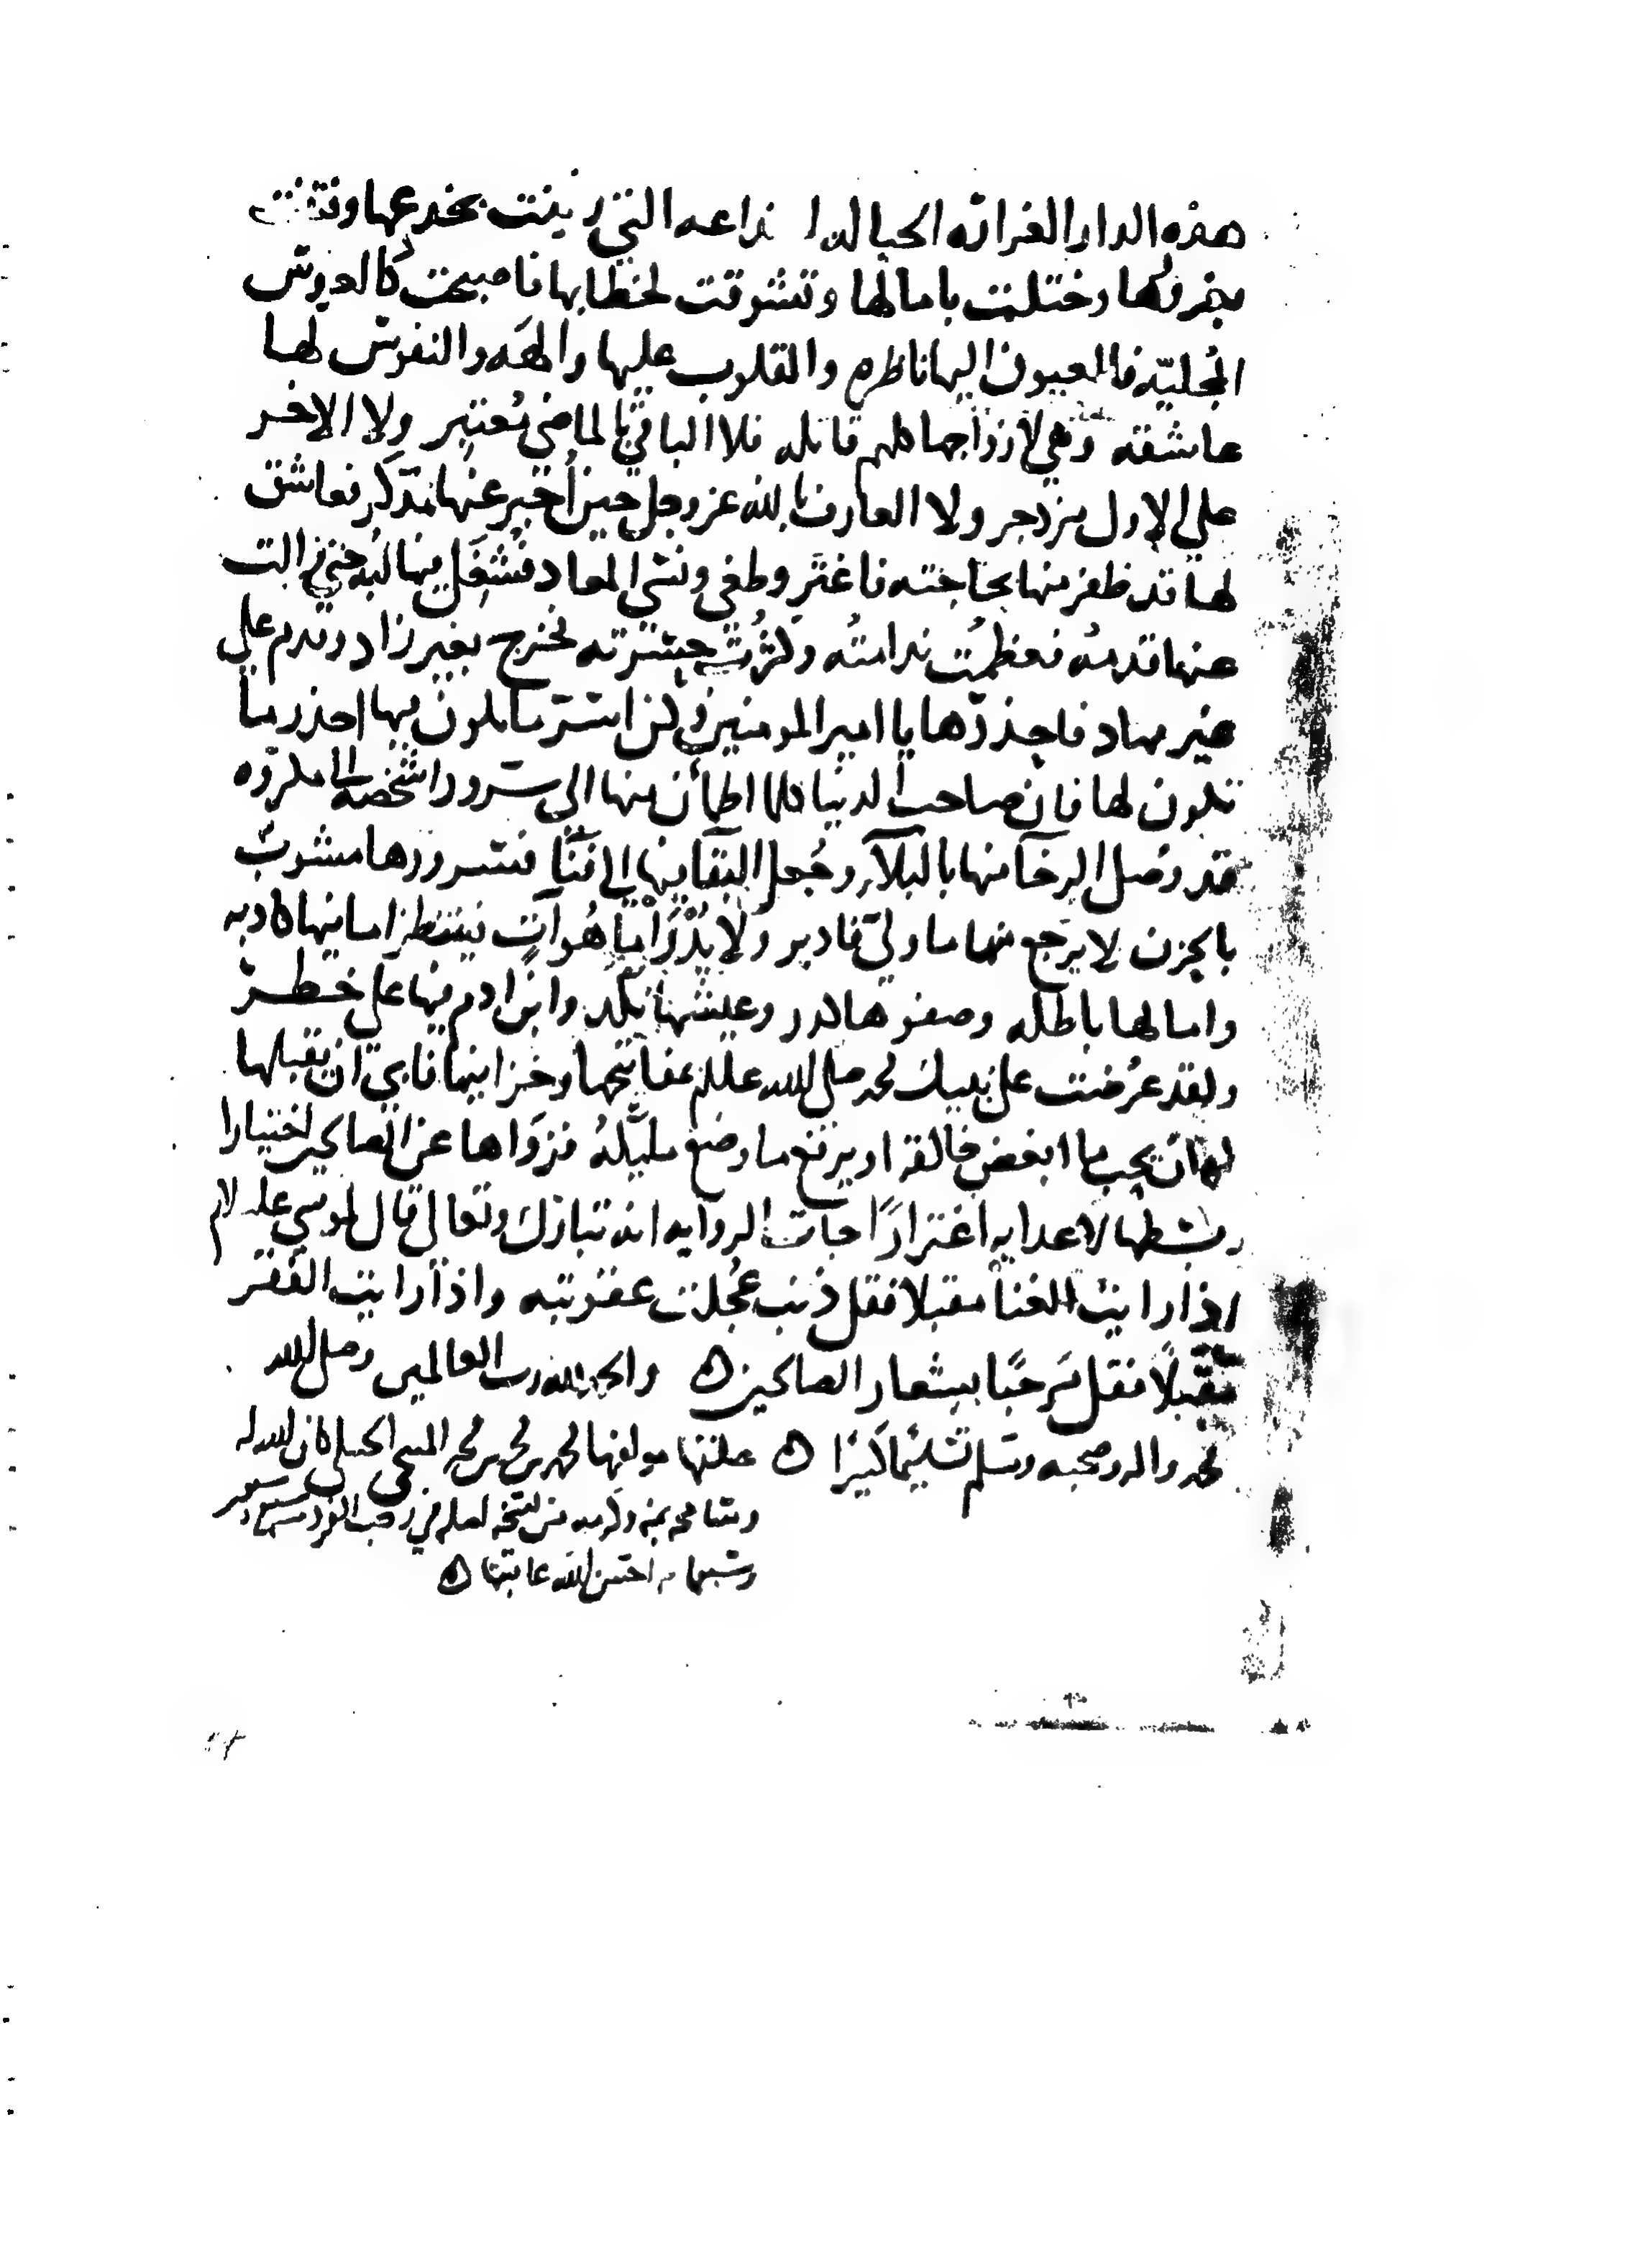 هذه الدار الغرارة الخداعه التي زينت بخدعها وفتنت
بغرورها وختلت بامالها وتشوقت لخطابها فاصبحت كالعروس
المجليّه فالعيون اليها ناظره والقلوب عليها والهَه والنفوس لها
عاشقه وهي لازواجها كلهم قاتله فلا الباقي بالماضي مُعتبِر ولا الاخر
على الاول مزدجر ولا العارف بالله عز وجل حين أخبر عنها مدّكر فعاشق
لها قد ظفر منها بحاجته فاغتَر وطغى ونسي المعاد فشُغِل فيها لبه حتى زالت
عنها قدمهُ فعظمُت ندامتُه وكثُرت حسرته فخرج بغير زاد وقدم على
غير مهاد فاحذرها يا امير المومنين وكن اسَر ما تكون فيها احذر ما
تكون لها فان صاحب الدنيا كلما اطمأن منها الى سرور اشخصه الى مكروه
قد وُصل الرخآ منها بالبلآء وجُعل البقا فيها الى فنآ فسرورها مشوب
بالحزن لا يرجع منها ما ولى فادبر ولا يُدْرَا ما هُو آت فينتظر امانيها كاذبه
وامالها باطله وصفوها كدر وعيشها نكد وابن ادم فيها على خطر
ولقد عُرضت على نبيك محمد صلى الله عليه وسلم بمفاتيحها وخزاينها فابى ان يقبلها
لها ان يحب ما ابغض خالقه او يرفع ما وضع مليكهُ فزَواها عن الصالحين اختيارا
وبسطها لاعدايه اغترارًا جات الروايه انه تبارك وتعالى قال لموسى عليه السلام
اذا رايت الغنا مقبلا فقل ذنب عُجلت عقوبته واذا رايت الفقر
مقبلًا فقل مَرحبًا بشعار الصالحين ۞ والحمد لله رب العالمين وصلى الله
محمد واله وصحبه وسلم تسليمًا كثيرًا ۞ علقها مولفها محمد بن محمد بن محمد المنبجي الحنبلي كان الله له
وسامحه بمنه وكرمه من نسخة
احسن الله عاقبتها ۞